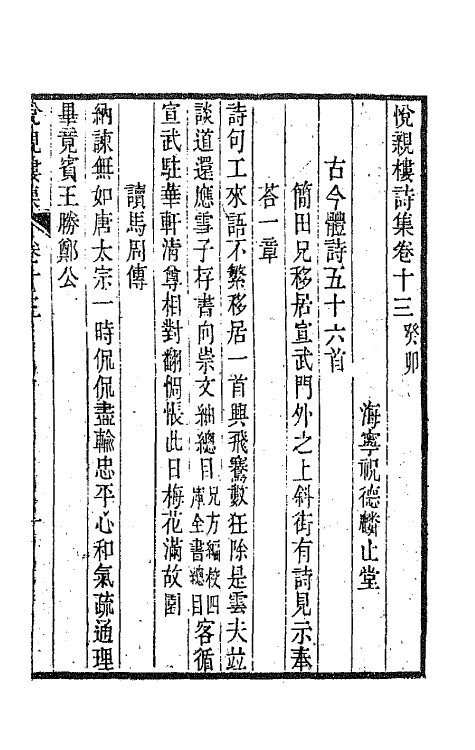 悅親樓詩集卷十三 癸卯
海寧祝德麟止堂
古今體詩五十六首
簡田兄移居宣武門外之上斜街有詩見示奉
荅一章
詩句工來語不繁移居一首興飛騫數狂除是雲夫竝
談道還應雪子存書向崇文紬總目兄方編校四庫全書總目客循
宣武駐華軒清尊相對翻惆悵此日梅花滿故園
讀馬周傳
納諫無如唐太宗一時侃侃盡輸忠平心和氣疏通理
畢竟賓王勝鄭公
悅親樓集 卷十三